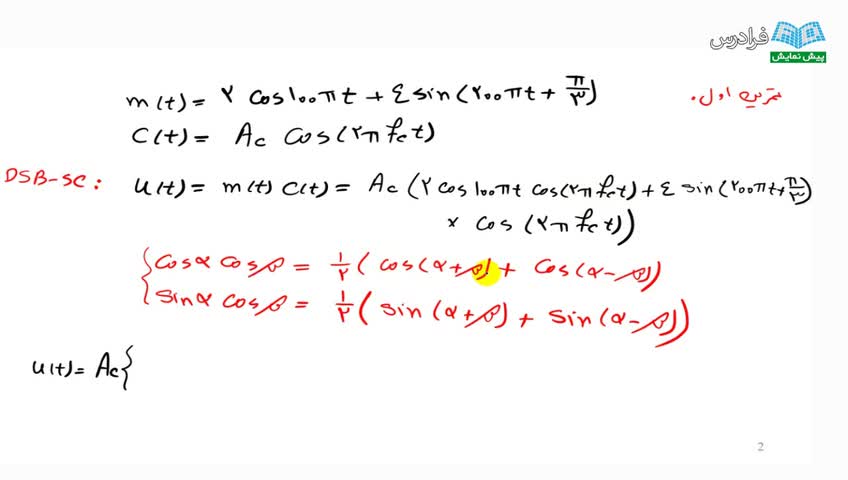 فرادرس
پیش نمایش
تمرین اول.
m(t) = ۲ cos۱۰۰πt + ٤ sin(۲۰۰πt + π/۳)
C(t) = Ac cos(۲π fc t)
DSB-SC: u(t) = m(t) c(t) = Ac (۲ cos۱۰۰πt cos(۲π fc t) + ٤ sin(۲۰۰πt + π/۳)
× cos(۲π fc t))
{ cosα cosβ = ۱/۲ (cos(α+β) + cos(α-β))
{ sinα cosβ = ۱/۲ (sin(α+β) + sin(α-β))
u(t) = Ac {
2